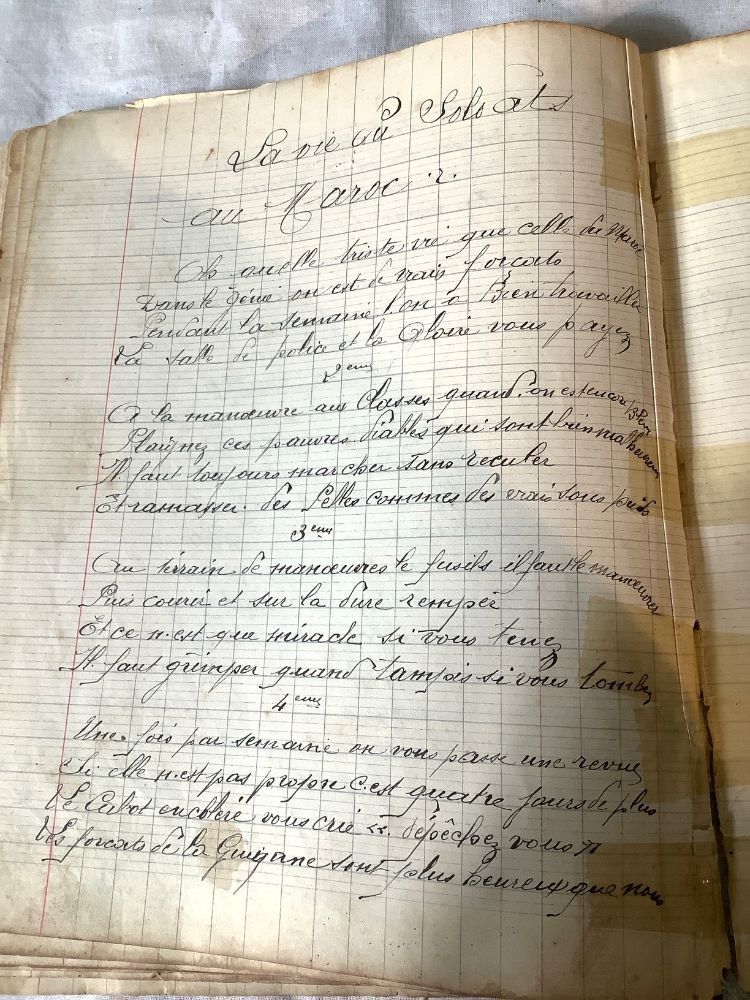 La vie du Soldats
au Maroc
Oh quelle triste vie que celle du Maroc
Dans le Génie on est de vrais forçats
Pendant la semaine l'on a Bien travailler
La salle de police et la Gloire vous payez
2eme
A la manœuvre aux Classes quand on est encore Bleu
Plaignez ces pauvres Diables qui sont bien malheureux
Il faut toujours marcher sans reculer
Et ramasser des Pelles commes des vrais sous pieds
3eme
Au terrain de manœuvres le fusils il faut le manœuvrer
Puis courir et sur la dure remper
Et ce n'est que miracle si vous tenez
Il faut grimper quand tampis si vous tombez
4eme
Une fois par semaine on vous passe une revue
Si elle n'est pas propre c'est quatre jours de plus
Le Cabot encolère vous crie " dépêchez vous "
Les forcats de la Guyane sont plus heureux que nous